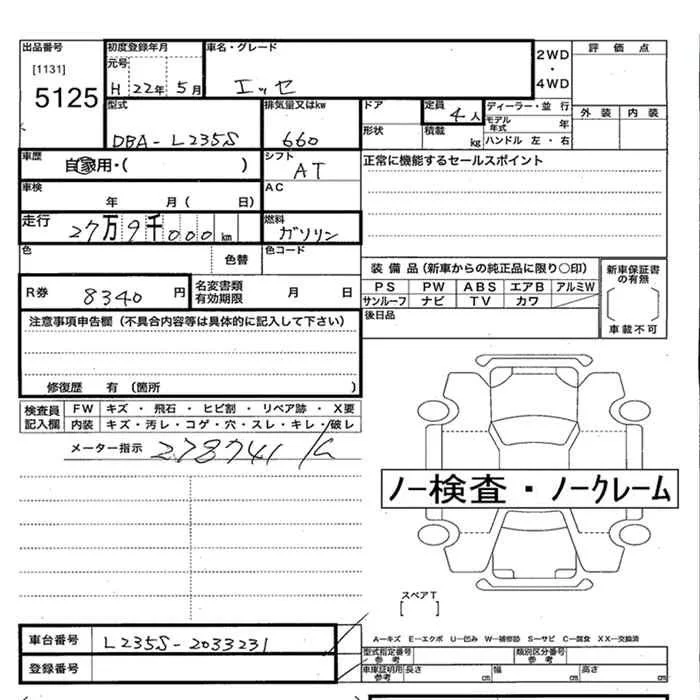 出品番号 初度登録年月 車名・グレード 2WD・4WD 評価点
[1131] 元号
5125 H 22年 5月 エッセ
型式 排気量又はkw ドア 定員 4人 ディーラー・並行 外装 内装
モデル年式 年
DBA-L235S 660 形状 積載 kg ハンドル 左・右
車歴 自家用・( ) シフト AT 正常に機能するセールスポイント
車検 年 月( 日) AC
走行 27万9千000km 燃料 ガソリン
色 色替 色コード
装備品(新車からの純正品に限り○印) 新車保証書の有無
R券 8340円 名変書類有効期限 月 日 PS PW ABS エアB アルミW
サンルーフ ナビ TV カワ
注意事項申告欄(不具合内容等は具体的に記入して下さい) 後日品 車載不可
修復歴 有(箇所 )
検査員記入欄 FW キズ・飛石・ヒビ割・リペア跡・X要
内装 キズ・汚レ・コゲ・穴・スレ・キレ・破レ
メーター指示 278741
ノー検査・ノークレーム
スペアT
[ ]
車台番号 L235S-2033231 A-キズ E-エクボ U-凹み W-補修跡 S-サビ C-腐食 XX-交換済
型式指定番号 参考 類別区分番号 参考
登録番号 車車証明用参考 長さ cm 幅 cm 高さ cm